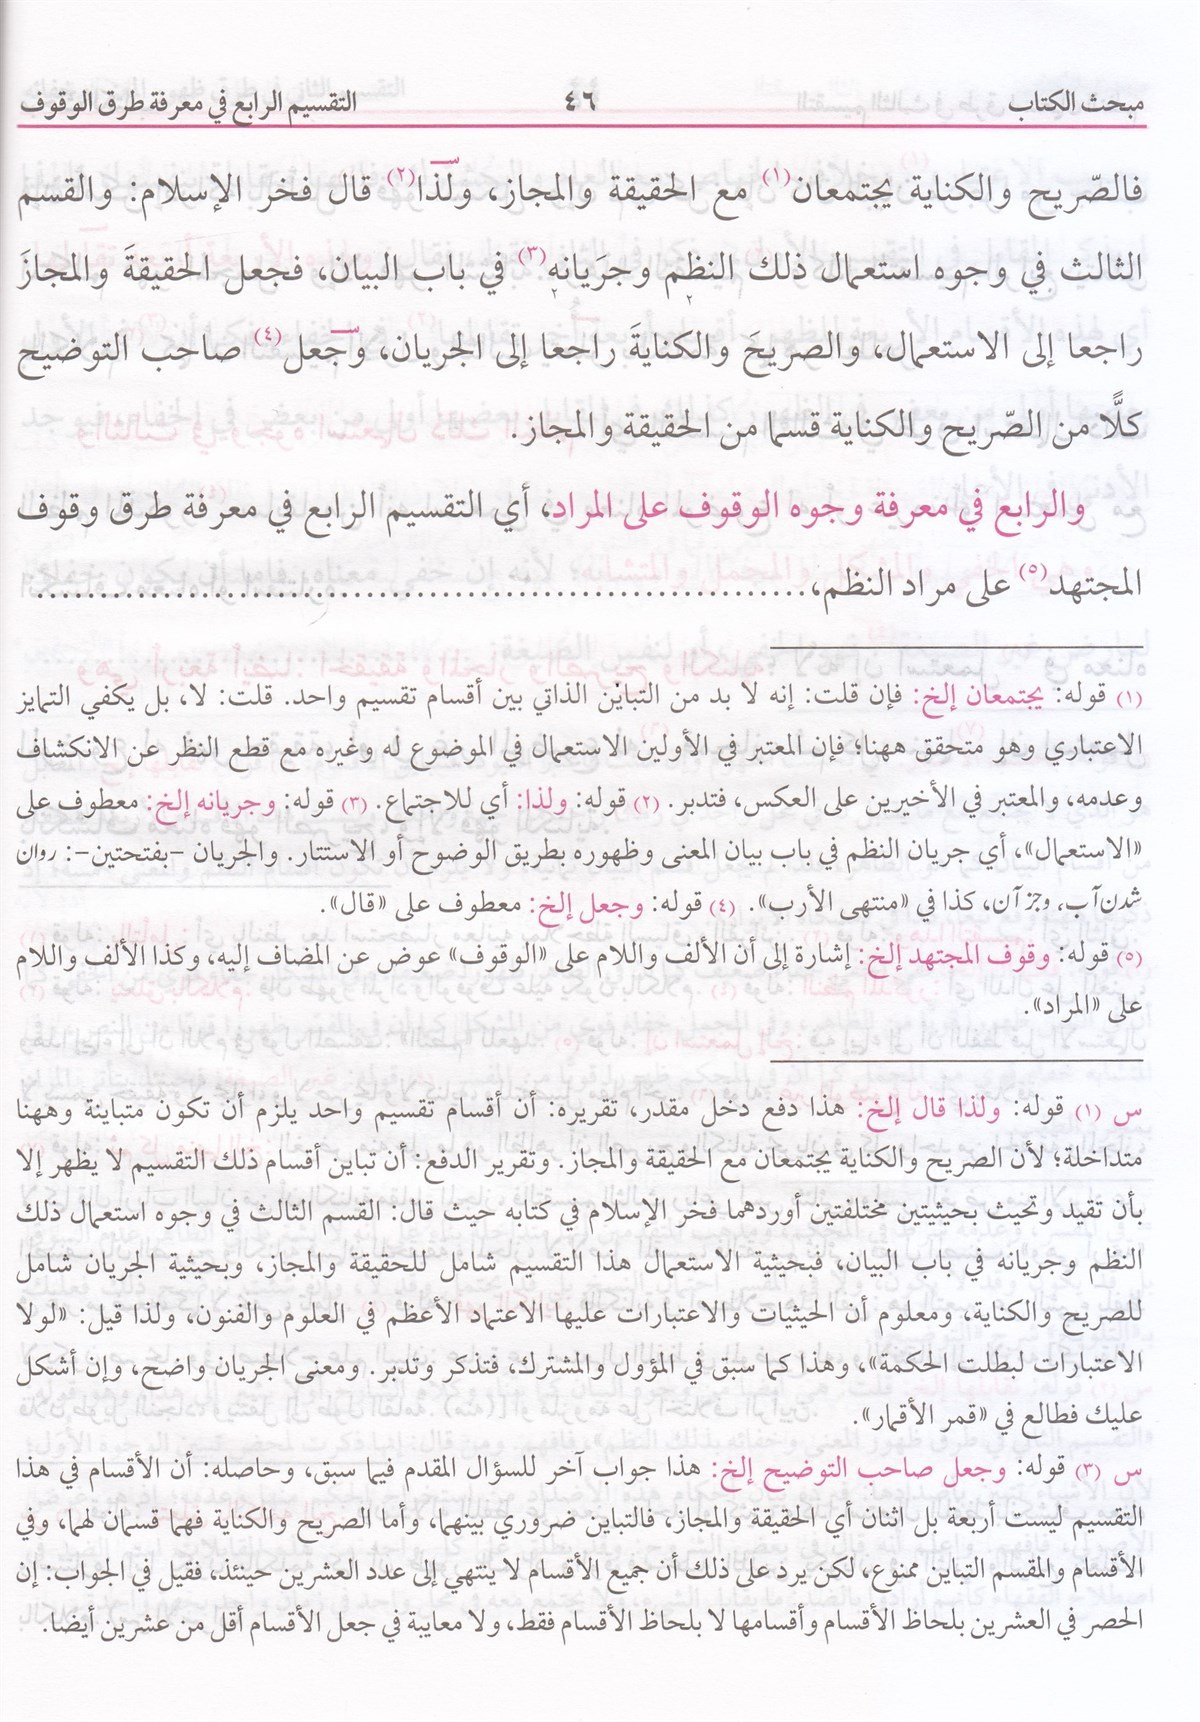 مبحث الكتاب ٤٦ التقسيم الرابع في معرفة طرق الوقوف
فالصّريح والكناية يجتمعان(١) مع الحقيقة والمجاز، ولذا(٢) قال فخر الإسلام: والقسم
الثالث في وجوه استعمال ذلك النظم وجرَيانه(٣) في باب البيان، فجعل الحقيقةَ والمجازَ
راجعا إلى الاستعمال، والصريحَ والكنايةَ راجعا إلى الجريان، وجعل(٤) صاحب التوضيح
كلًّا من الصّريح والكناية قسما من الحقيقة والمجاز.
والرابع في معرفة وجوه الوقوف على المراد، أي التقسيم الرابع في معرفة طرق وقوف
المجتهد(٥) على مراد النظم،..............................................................
(١) قوله: يجتمعان إلخ: فإن قلت: إنه لا بد من التباين الذاتي بين أقسام تقسيم واحد. قلت: لا، بل يكفي التمايز
الاعتباري وهو متحقق ههنا؛ فإن المعتبر في الأولين الاستعمال في الموضوع له وغيره مع قطع النظر عن الانكشاف
وعدمه، والمعتبر في الأخيرين على العكس، فتدبر. (٢) قوله: ولذا: أي للاجتماع. (٣) قوله: وجريانه إلخ: معطوف على
«الاستعمال»، أي جريان النظم في باب بيان المعنى وظهوره بطريق الوضوح أو الاستتار. والجريان -بفتحتين-: روان
شدن آب، وجز آن، كذا في «منتهى الأرب». (٤) قوله: وجعل إلخ: معطوف على «قال».
(٥) قوله: وقوف المجتهد إلخ: إشارة إلى أن الألف واللام على «الوقوف» عوض عن المضاف إليه، وكذا الألف واللام
على «المراد».
س (١) قوله: ولذا قال إلخ: هذا دفع دخل مقدر، تقريره: أن أقسام تقسيم واحد يلزم أن تكون متباينة وههنا
متداخلة؛ لأن الصريح والكناية يجتمعان مع الحقيقة والمجاز. وتقرير الدفع: أن تباين أقسام ذلك التقسيم لا يظهر إلا
بأن تقيد وتحيث بحيثيتين مختلفتين أوردهما فخر الإسلام في كتابه حيث قال: القسم الثالث في وجوه استعمال ذلك
النظم وجريانه في باب البيان، فبحيثية الاستعمال هذا التقسيم شامل للحقيقة والمجاز، وبحيثية الجريان شامل
للصريح والكناية، ومعلوم أن الحيثيات والاعتبارات عليها الاعتماد الأعظم في العلوم والفنون، ولذا قيل: «لولا
الاعتبارات لبطلت الحكمة»، وهذا كما سبق في المؤول والمشترك، فتذكر وتدبر. ومعنى الجريان واضح، وإن أشكل
عليك فطالع في «قمر الأقمار».
س (٣) قوله: وجعل صاحب التوضيح إلخ: هذا جواب آخر للسؤال المقدم فيما سبق، وحاصله: أن الأقسام في هذا
التقسيم ليست أربعة بل اثنان أي الحقيقة والمجاز، فالتباين ضروري بينهما، وأما الصريح والكناية فهما قسمان لهما، وفي
الأقسام والمقسم التباين ممنوع، لكن يرد على ذلك أن جميع الأقسام لا ينتهي إلى عدد العشرين حينئذ، فقيل في الجواب: إن
الحصر في العشرين بلحاظ الأقسام وأقسامها لا بلحاظ الأقسام فقط، ولا معايبة في جعل الأقسام أقل من عشرين أيضا.